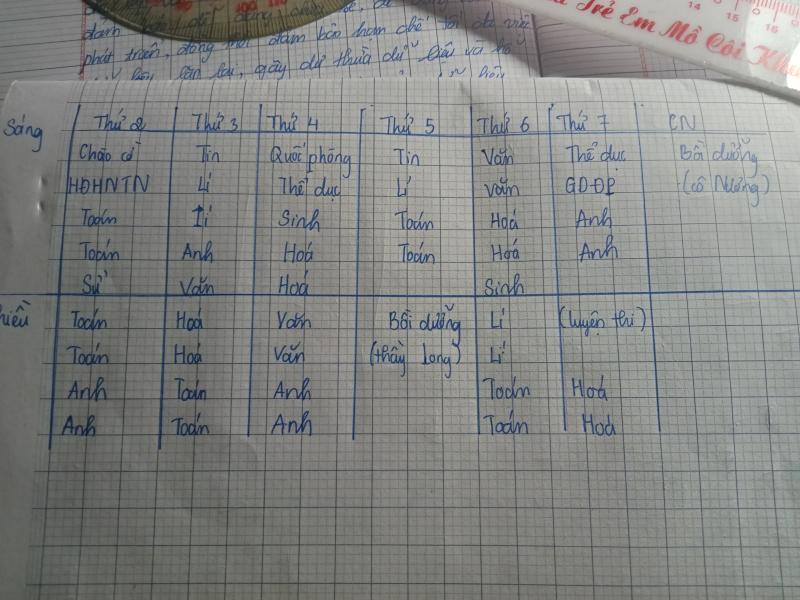 phát triển, đồng thời đảm bảo hạn chế tối đa việc
gây dư thừa dữ liệu và
Trẻ Em Mồ Côi
14 15 16
Sáng Thứ 2 Thứ 3 Thứ 4 Thứ 5 Thứ 6 Thứ 7 CN
Chào cờ Tin Quốc phòng Tin Văn Thể dục Bồi dưỡng
HĐHNTN Lí Thể dục Lí Văn GDĐP (cô Nương)
Toán Lí Sinh Toán Hoá Anh
Toán Anh Hoá Toán Hoá Anh
Sử Văn Hoá Sinh
hiều Toán Hoá Văn Bồi dưỡng Lí (luyện thi)
Toán Hoá Văn (thầy Long) Lí
Anh Toán Anh Toán Hoá
Anh Toán Anh Toán Hoá